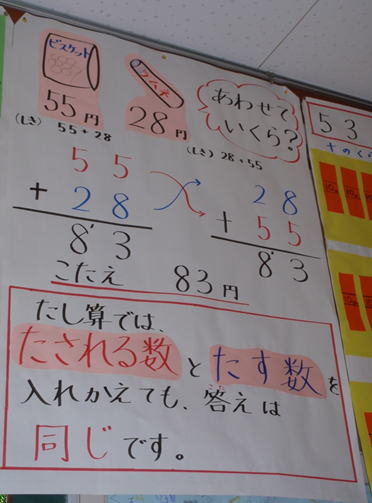 ビスケット
ラムネ
55円
28円
あわせて
いくら?
(しき) 55+28
(しき) 28+55
55
+28
83
28
+55
83
こたえ 83円
たし算では、
たされる数とたす数を
入れかえても、答えは
同じです。
53
十のくら